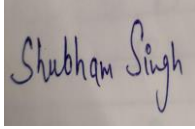 Shubham Singh